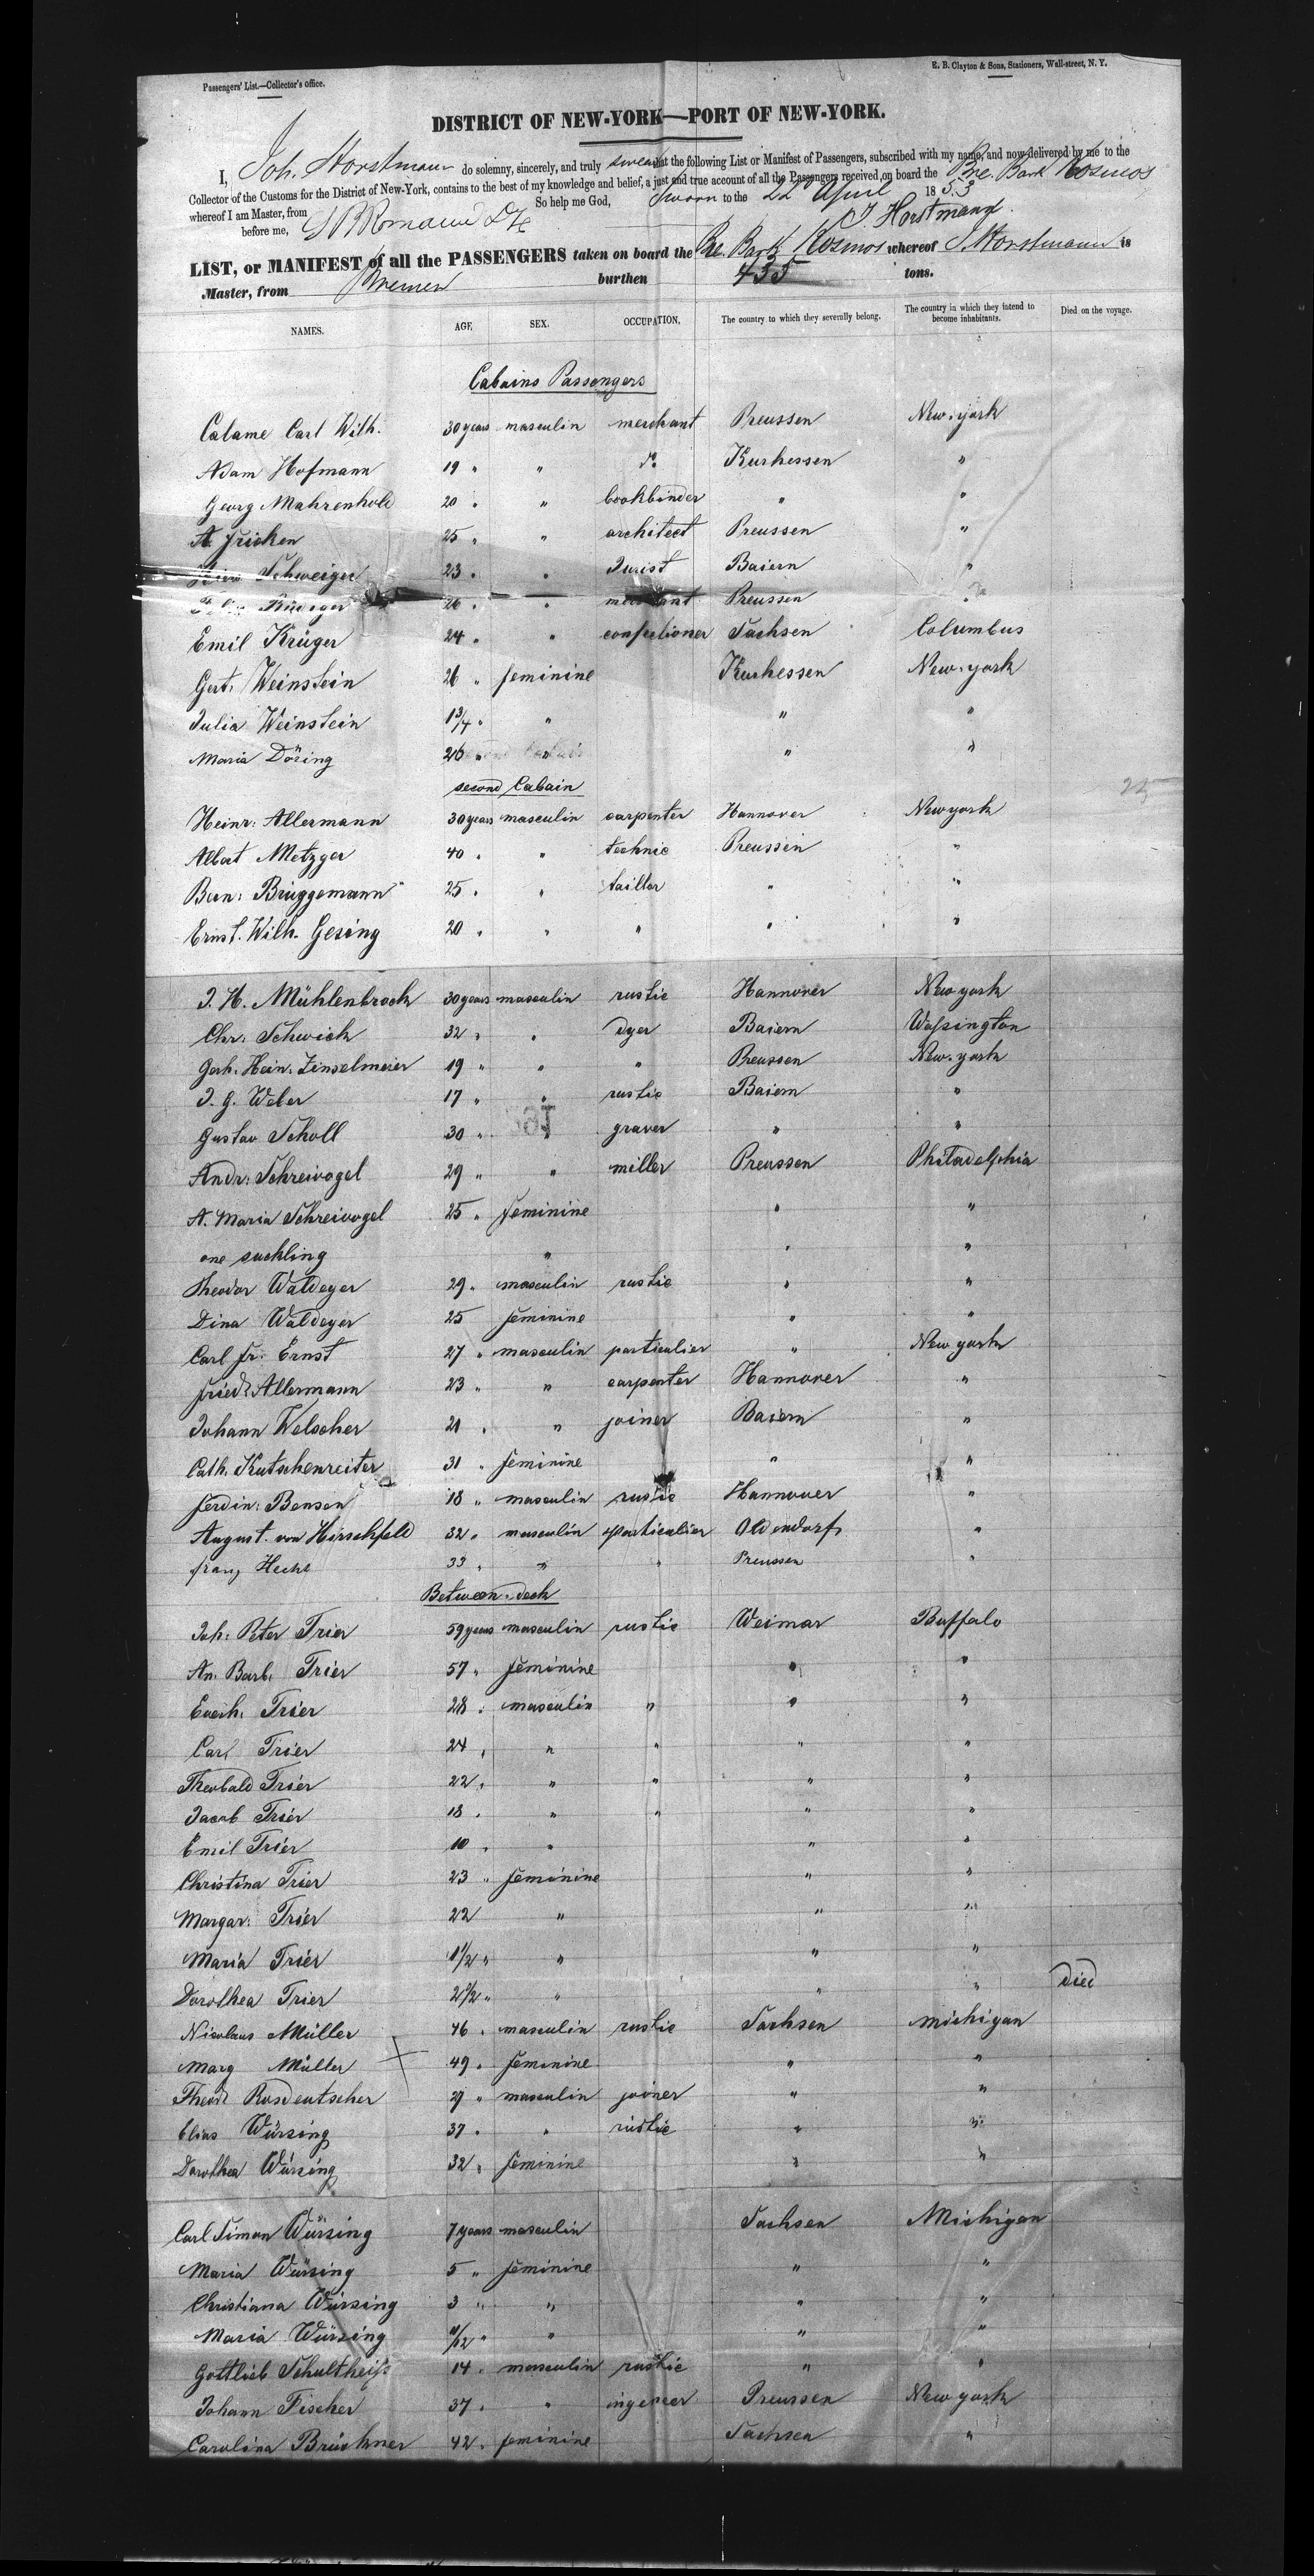 Passengers' List.—Collector's office.
E. B. Clayton & Sons, Stationers, Wall-street, N. Y.
DISTRICT OF NEW-YORK—PORT OF NEW-YORK.
I, Joh. Horstmann do solemny, sincerely, and truly swear that the following List or Manifest of Passengers, subscribed with my name, and now delivered by me to the
Collector of the Customs for the District of New-York, contains to the best of my knowledge and belief, a just and true account of all the Passengers received on board the Bre. Bark Kosmos
whereof I am Master, from So help me God, Sworn to the 22d April 1853
before me, J. Horstmann
LIST, or MANIFEST of all the PASSENGERS taken on board the Bre. Bark Kosmos whereof J. Horstmann is
Master, from Bremen burthen 435 tons.
NAMES. AGE, SEX. OCCUPATION, The country to which they severally belong. The country in which they intend to become inhabitants. Died on the voyage.
Cabains Passengers
Calame Carl Wilh. 30 years masculin merchant Preussen New-york
Adam Hofmann 19 " " do Kurhessen "
Georg Mahrenhold 20 " " bookbinder " "
A. Fricken 25 " " architect Preussen "
Schweiger 23 " " Jurist Baiern "
26 " " merchant Preussen "
Emil Krüger 24 " " confectioner Sachsen Columbus
Gert. Weinstein 26 " feminine Kurhessen New-york
Julia Weinstein 1 3/4 " " " "
Maria Döring 26 " " " "
second Cabain
Heinr: Allermann 30 years masculin carpenter Hannover New york
Albert Metzger 40 " " technic Preussen "
Bern: Brüggemann 25 " " taillor " "
Ernst. Wilh. Gesing 20 " " " " "
J. H. Mühlenbrock 30 years masculin rustic Hannover New york
Chr: Schwick 32 " " dyer Baiern Wassington
Gerh. Hein. Zinselmeier 19 " " " Preussen New-york
J. G. Weber 17 " " rustic Baiern "
Gustav Scholl 30 " " graver " "
Andr: Schreivogel 29 " " miller Preussen Philadelphia
A. Maria Schreivogel 25 " feminine " "
one suckling " " "
Theodor Waldeyer 29 " masculin rustic " "
Dina Waldeyer 25 feminine " "
Carl Fr: Ernst 27 " masculin particulier " New york
Fried: Allermann 23 " " carpenter Hannover "
Johann Welscher 21 " " joiner Baiern "
Cath. Kutschenreiter 31 " feminine " "
Ferdin: Bensen 18 " masculin rustic Hannover "
August von Hirschfeld 32 " masculin particulier Oldendorf "
Franz Hecht 33 " " " Preussen "
Between-deck
Joh: Peter Trier 59 years masculin rustic Weimar Buffalo
An. Barb. Trier 57 " feminine " "
Everh. Trier 28 " masculin " " "
Carl Trier 24 " " " " "
Theobald Trier 22 " " " " "
Jacob Trier 18 " " " " "
Emil Trier 10 " " " "
Christina Trier 23 " feminine " "
Margar: Trier 22 " " "
Maria Trier 1 1/2 " " " "
Dorothea Trier 2 1/2 " " " " died
Nicolaus Müller 46 " masculin rustic Sachsen Michigan
Marg Müller 49 " feminine " "
Theod: Rosdeutscher 29 " masculin joiner " "
Elias Würsing 37 " " rustic " "
Dorothea Würsing 32 " feminine " "
Carl Simon Würsing 7 years masculin Sachsen Michigan
Maria Würsing 5 " feminine " "
Christiana Würsing 3 " " " "
Maria Würsing 11/12 " " " "
Gottlieb Schultheiss 14 " masculin rustic " "
Johann Fischer 37 " " ingeneer Preussen New york
Carolina Brückner 42 " feminine Sachsen "